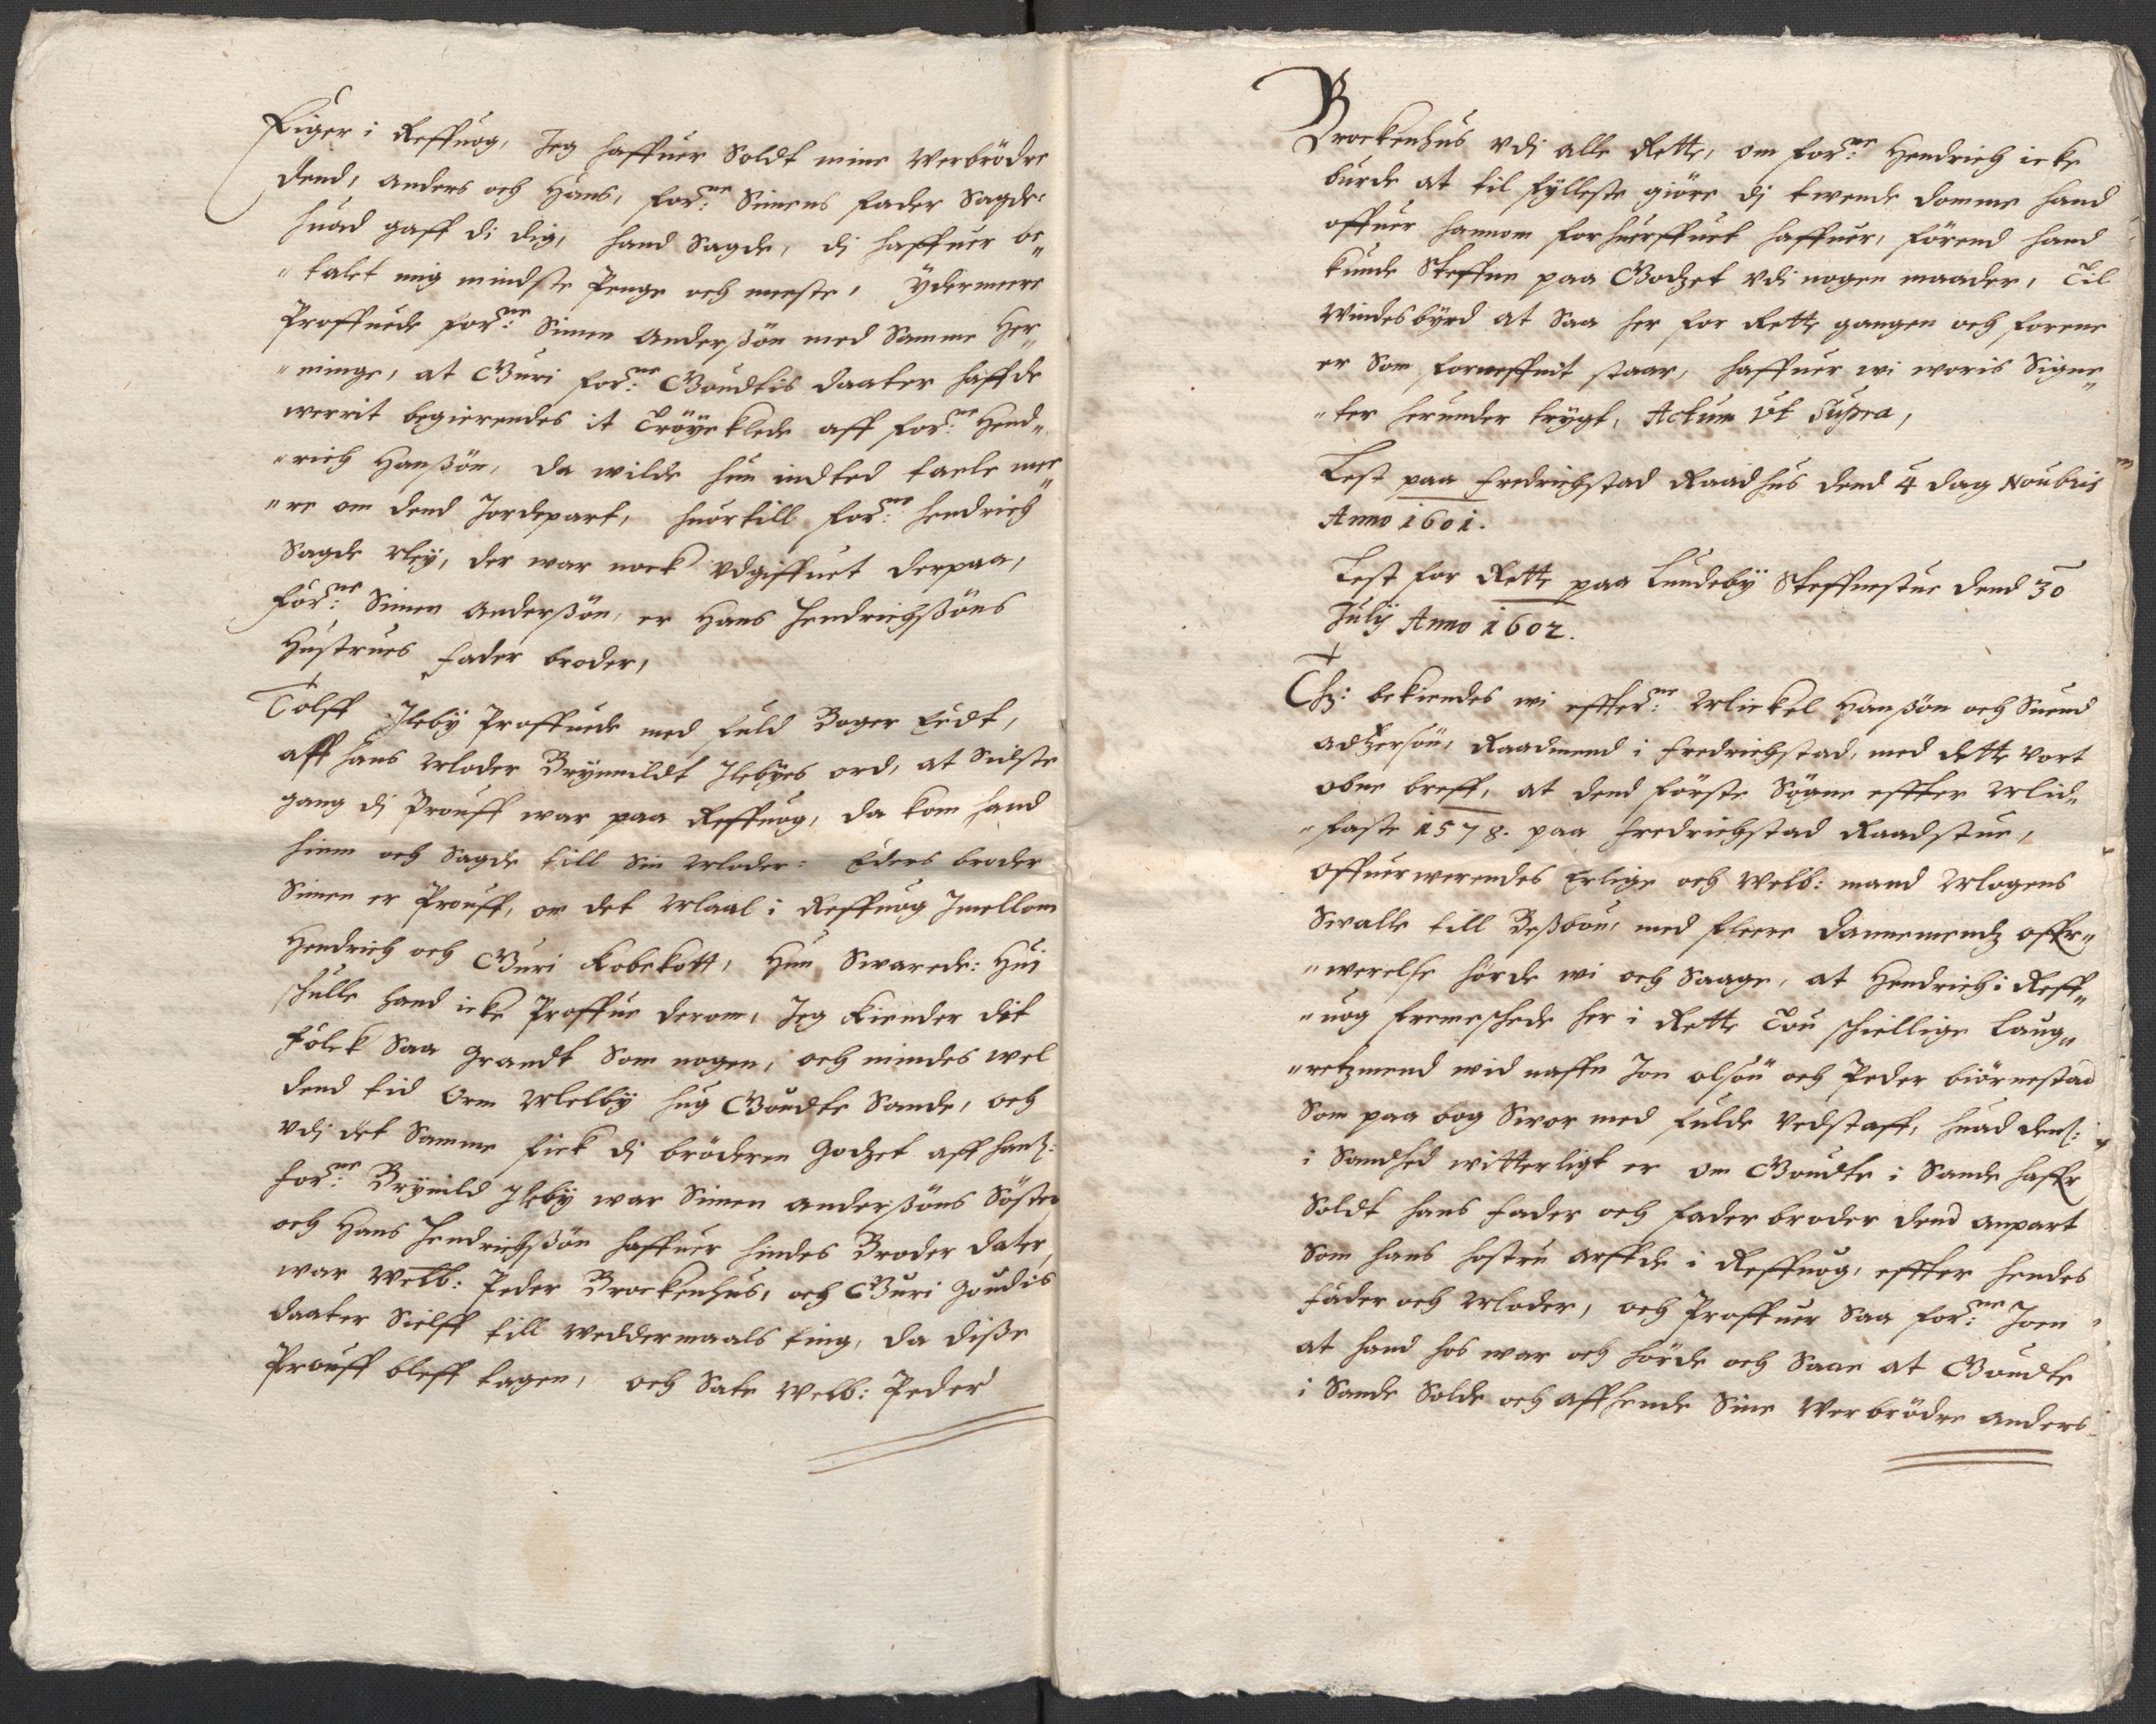 Eiger i Reffuog, Jeg haffuer Soldt mine Werbrödre
dend, Anders och Hans, for:ne Simens fader Sagde:
huad gaff di dig, hand Sagde, di haffuer be„
„talet mig mindste Penge och meeste, Ydermeere
Proffuede for:ne Simen Anderßön med Samme Her„
„minge, at Guri for:ne Goudtis daater haffde
werrit begierendes it Tröyeklede aff for:ne Hend„
„rich Hanßön, da wilde hun indted taele mee„
„re om dend Jordepart, huortill for:ne Hendrich
Sagde Ney, der war nock udgiffuet derpaa,
for:ne Simen Anderßön, er Hans Hendrichßöns
Hustrues fader broder,
Tolff Ileby Proffuede med fuld Boger Eedt,
aff hans Moder Brynnildt Ilebyes ord, at Sidste
gang di Prouff war paa Reffuog, da kom hand
hiem och Sagde till Sin Moder: Eders broder
Simen er Prouff, om det Maal i Reffuog Jmellom
Hendrich och Guri Kobekott, Hun Swarede: Hui
schulle hand icke Proffue derom, Jeg kiender dit
folck Saa grandt Som nogen, och mindes wel
dend tid Orm Melby hug Goudte Sande, och
udi det Samme fick di bröderne Godzet aff hans:
for:ne Brynild Ileby war Simen Anderßöns Söster
och Hans Hendrichßön haffuer hindes Broder dater,
war Welb: Peder Brockenhus, och Guri Goudis
daater Sielff till Weddermaals ting, da diße
Prouff bleff tagen, och Sate Welb: Peder
Brockenhus udj alle Rette, om for:ne Hendrich icke
burde at til fylleste giöre dj twende domme hand
offuer hannom forhuerffuet haffuer, förend hand
kunde Steffne paa Godzet udi nogen maader, Til
Windesbyrd at Saa her for Rette gangen och forene
er Som forneffnit staar, haffuer wi woris Signe„
„ter herunder trygt, Actum Ut Supra,
Lest paa Fredrichstad Raadhus dend 4 dag Noubris
Anno 1601.
Lest for Rette paa Lundeby Steffnestue dend 30
Julij Anno 1602.
Thz: bekiendes wi effter:ne Mickel Hanßön och Suend
Adzersön, Raadmend i Fredrichstad, med dette vort
obne breff, at dend förste Sögne effter Mid„
„faste 1578. paa Fredrichstad Raadstue,
offuerwerendes Erlige och Welb: mand Mogens
Swalle till Beßbou, med fleere dannemendz offr„
„werelse hörde wi och Saage, at Hendrich i Reff„
„uog fremeschede her i Rette Tou schiellige Laug„
„retzmend wid naffn Jon olsön och Peder biörnestad
Som paa bog Swor med fulde Eedstaff, huad denß:
i Sandhed witterligt er om Goudte i Sande haffr
Soldt hans fader och fader broder dend anpart
Som hans hostru arffde i Reffuog, effter hendes
fader och Moder, och Proffuer Saa for:ne Joen
at hand hos war och hörde och Saae at Goudte
i Sande Solde och affhende Sine Werbrödre Anders